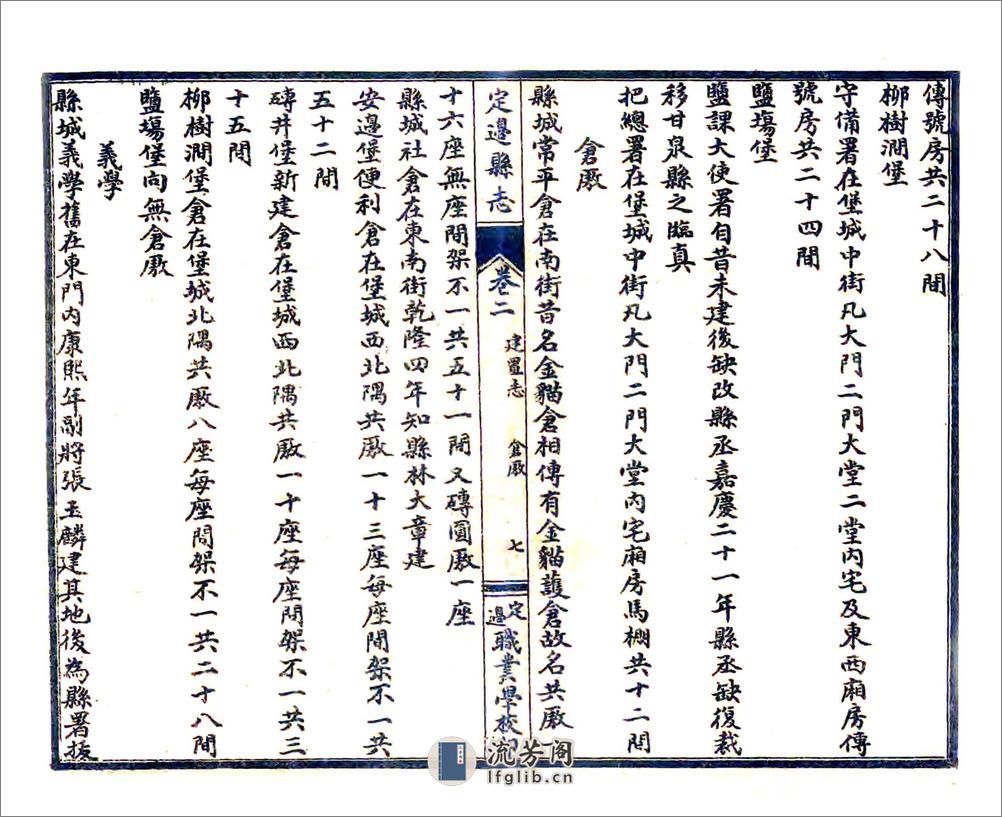 傳號房共二十八間
柳樹澗堡
守備署在堡城中街凡大門二門大堂二堂內宅及東西廂房傳
號房共二十四間
鹽塲堡
鹽課大使署自昔未建後缺改縣丞嘉慶二十一年縣丞缺復裁
移甘泉縣之臨真
把總署在堡城中街凡大門二門大堂內宅廂房馬棚共十二間
倉厫
縣城常平倉在南街昔名金貓倉相傳有金貓護倉故名共厫一
定邊縣志
卷二
建置志 倉厫
七
定邊職業學校印
十六座無座間架不一共五十一間又磚圓厫一座
縣城社倉在東南街乾隆四年知縣林大章建
安邊堡便利倉在堡城西北隅共厫一十三座每座間架不一共
五十二間
磚井堡新建倉在堡城西北隅共厫一十座每座間架不一共三
十五間
柳樹澗堡倉在堡城北隅共厫八座每座間架不一共二十八間
鹽塲堡向無倉厫
義學
縣城義學舊在東門內康熙年副將張玉麟建其地後為縣署按
流芳阁
lfglib.cn